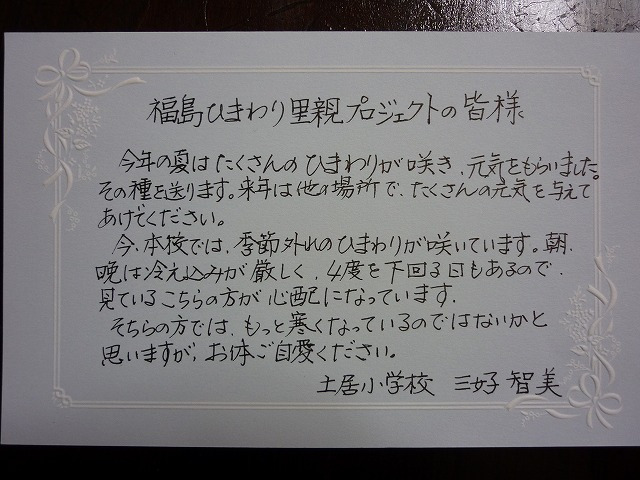 福島ひまわり里親プロジェクトの皆様
今年の夏はたくさんのひまわりが咲き、元気をもらいました。
その種を送ります。来年は他の場所で、たくさんの元気を与えて
あげてください。
今、本校では、季節外れのひまわりが咲いています。朝、
晩は冷え込みが厳しく、4度を下回る日もあるので、
見ているこちらの方が心配になっています。
そちらの方では、もっと寒くなっているのではないかと
思いますが、お体ご自愛ください。
土居小学校 三好 智美